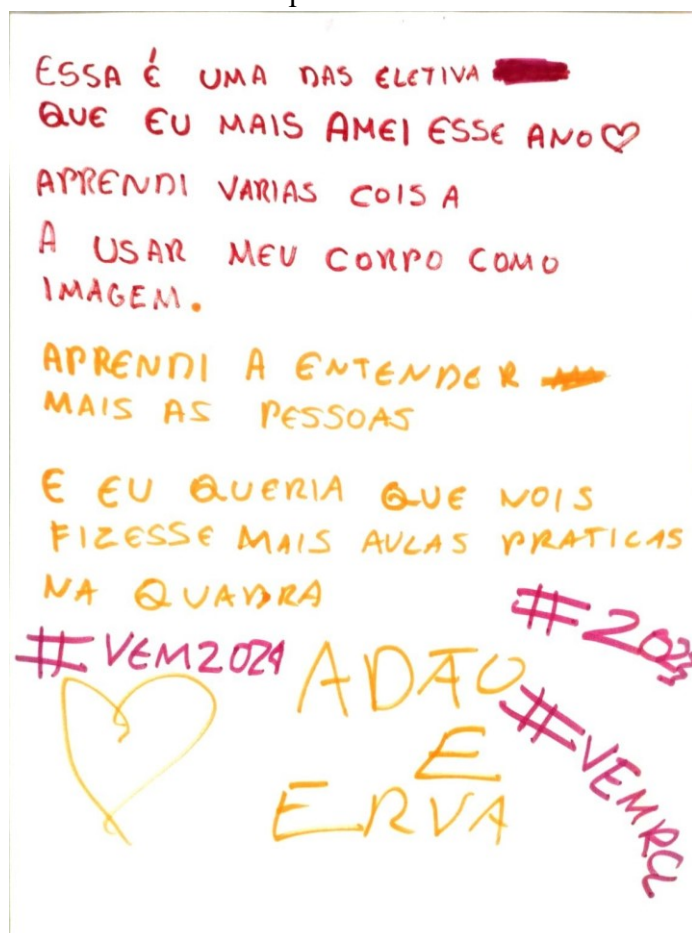 ESSA É UMA DAS ELETIVA
QUE EU MAIS AMEI ESSE ANO♡
APRENDI VARIAS COIS A
A USAR MEU CORPO COMO
IMAGEM.
APRENDI A ENTENDER
MAIS AS PESSOAS
E EU QUERIA QUE NOIS
FIZESSE MAIS AULAS PRATICAS
NA QUADRA
#2023
#VEM2024
ADÃO
E
ERVA
#VEMRCL